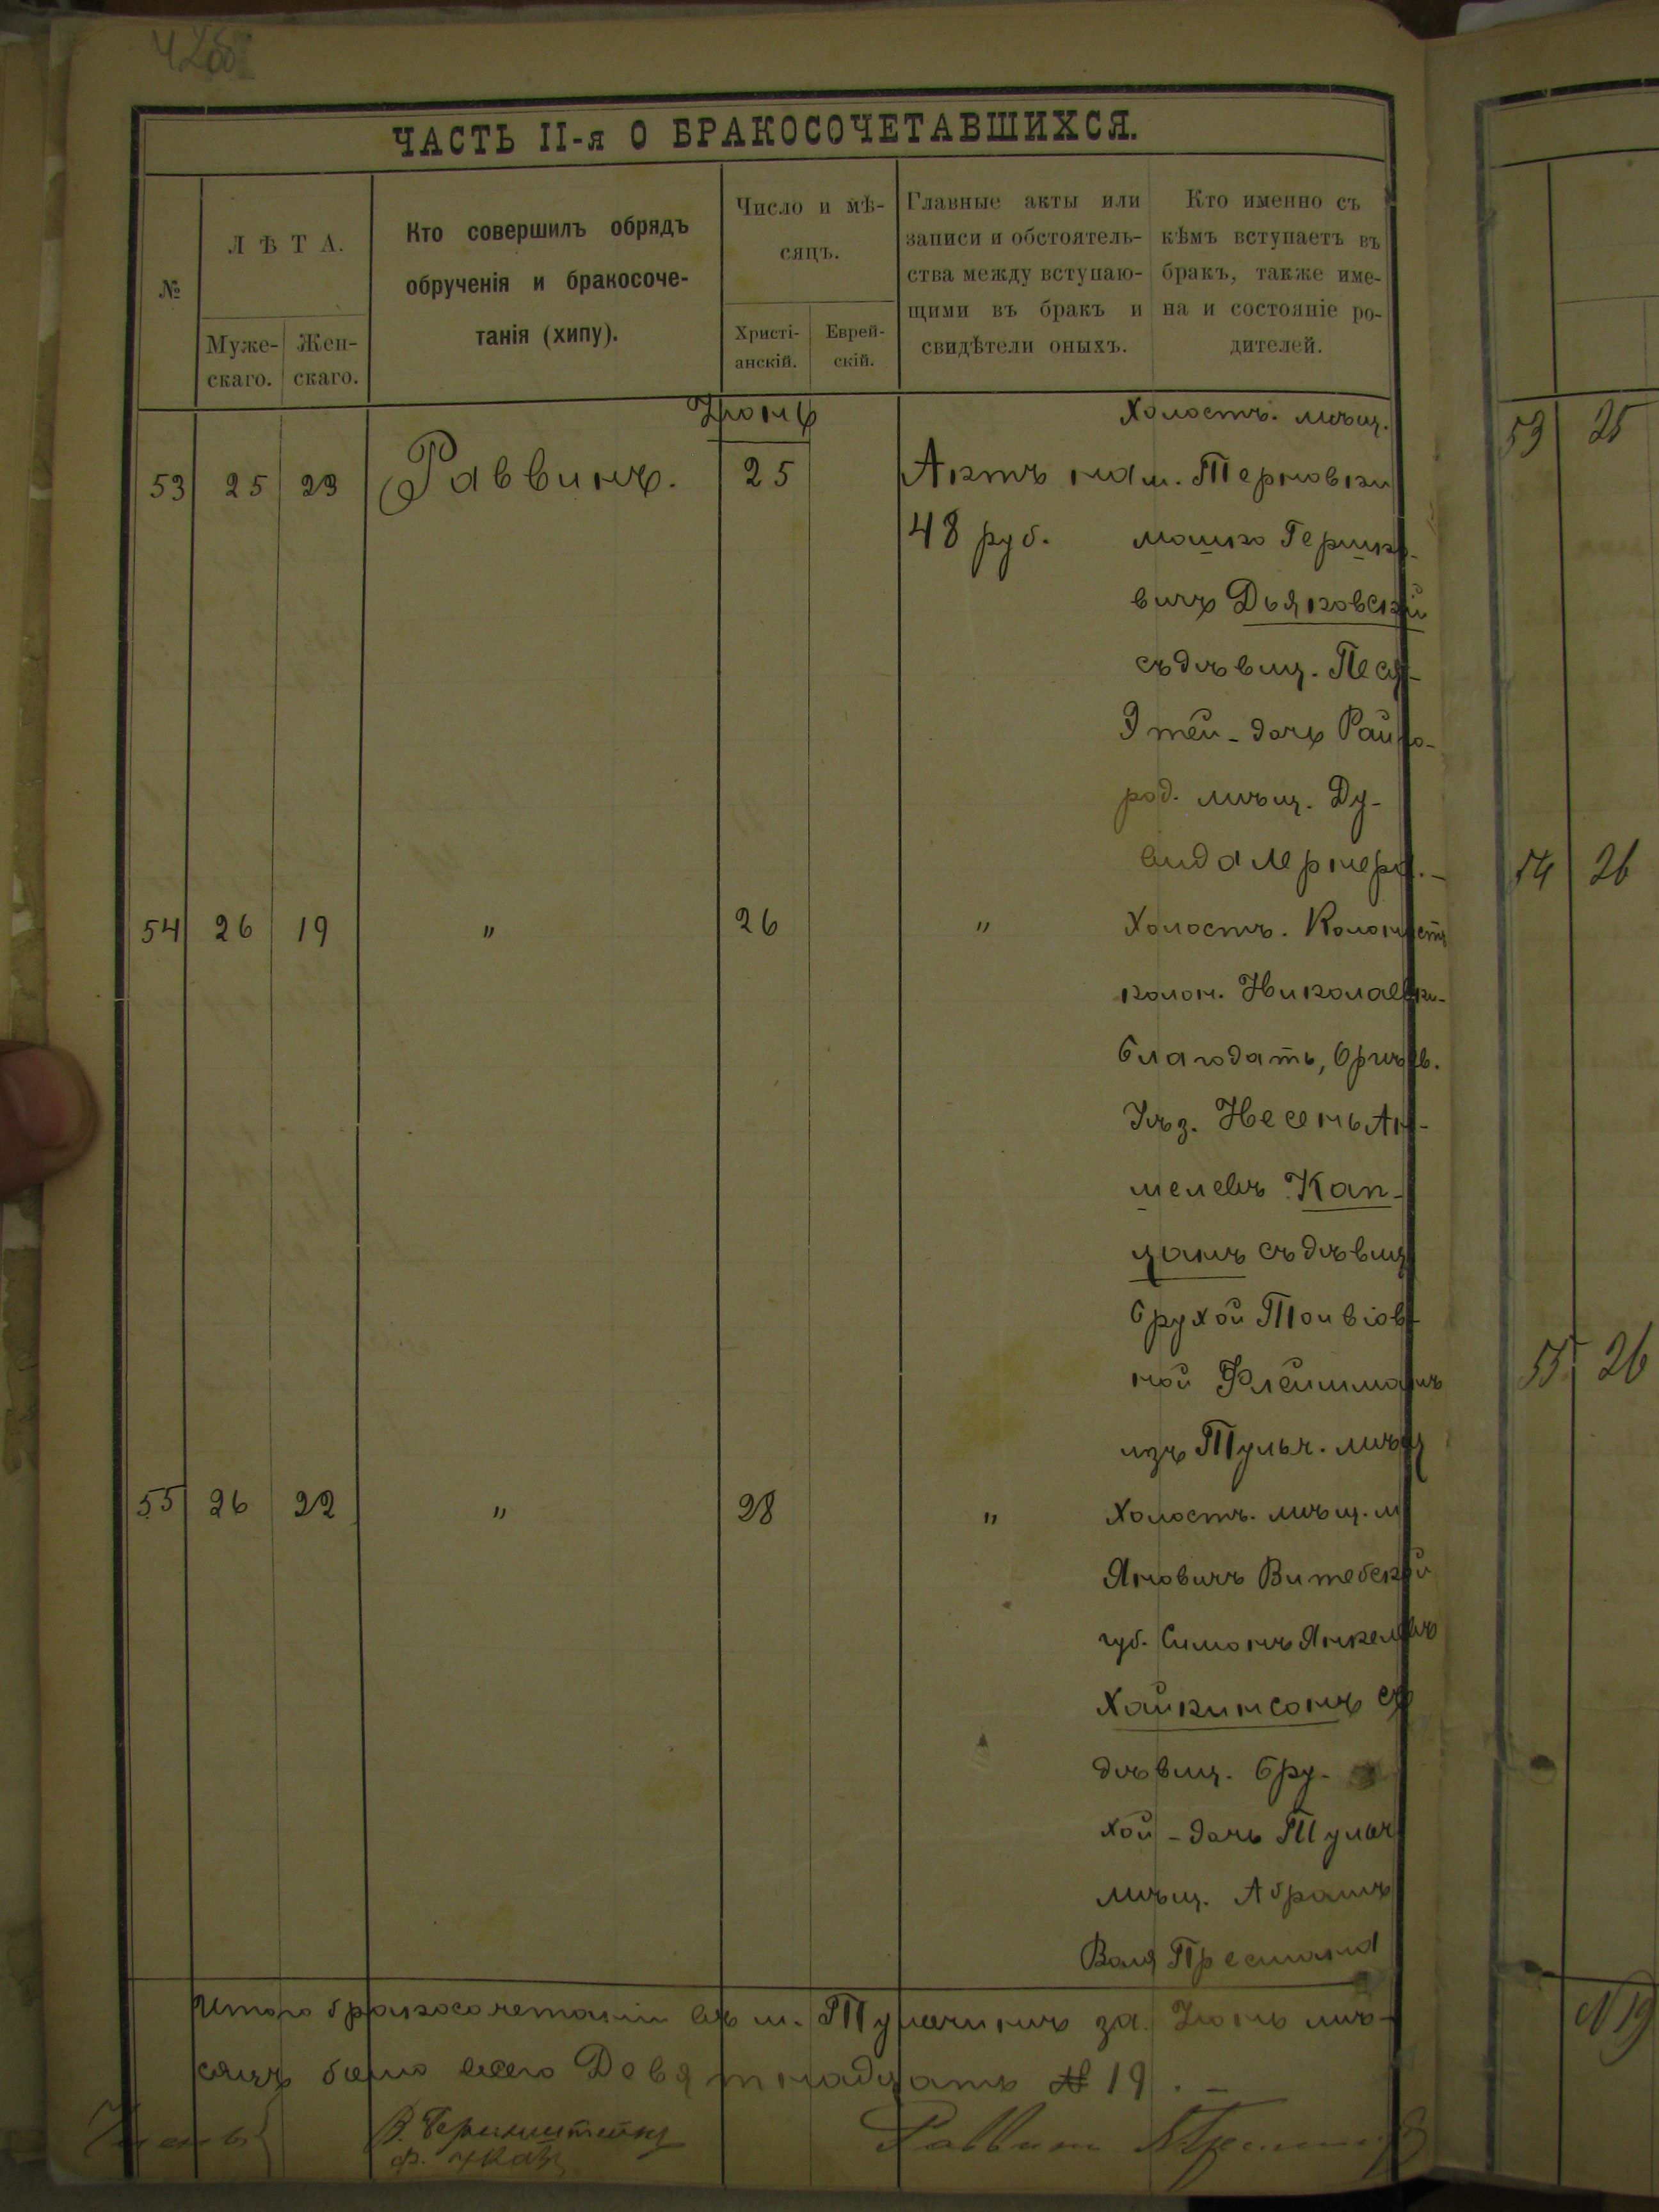 428
ЧАСТЬ II-я О БРАКОСОЧЕТАВШИХСЯ.
№
ЛѢТА.
Муже-
скаго.
Жен-
скаго.
Кто совершилъ обрядъ
обрученія и бракосоче-
танія (хипу).
Число и мѣ-
сяцъ.
Христі-
анскій.
Еврей-
скій.
Главные акты или
записи и обстоятель-
ства между вступаю-
щими въ бракъ и
свидѣтели оныхъ.
Кто именно съ
кѣмъ вступаетъ въ
бракъ, также име-
на и состояніе ро-
дителей.
Іюнь
Холостъ. мѣщ.
53 25 23 Раввинъ. 25 Актъ на м. Терновки
48 руб. Мошко Гершко-
вичъ Дьяковскій
съ дѣвиц. Песя-
Этей-дочъ Райго-
род. мѣщ. Ду-
вида Лернера.-
54 26 19 " 26 " Холостъ. Колонистъ
колон. Николаевки-
благодать,
Уѣз. Несень Ан-
шелевъ Кап-
цанъ съ дѣвиц
Брухой Тоивіов-
ной Флейшманъ
изъ Тульч. мѣщ
55 26 22 " 28 " Холостъ. мѣщ. м
Яновичъ Витебской
губ. Симонъ Янкелевъ
Хайкинсонъ съ
дѣвиц. Бру-
хой-дочь Тульч
мѣщ. Абрамъ
Воля Пресмана
Итого бракосочетаній въ м. Тульчинѣ за Іюнь мѣ-
сяцъ было всего Девятнадцать № 19.-
В. Бернштейнъ
Раввинъ
53 25
54 26
55 26
№ 19